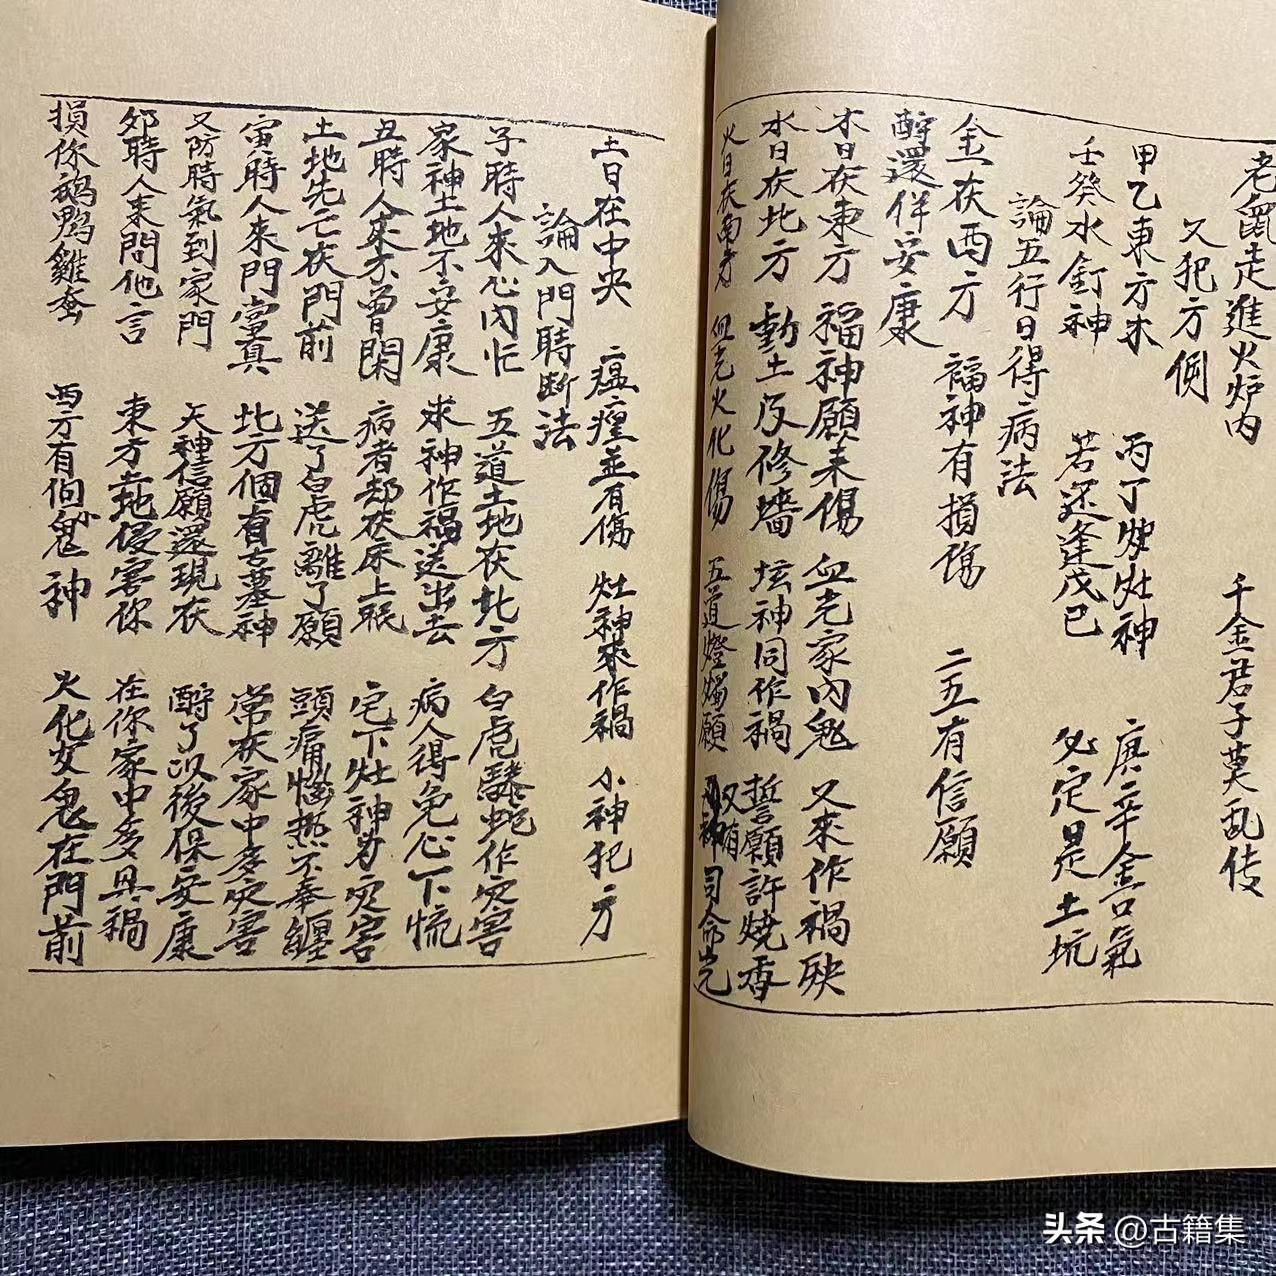 老鼠走進火炉内 千金君子莫乱传
又犯方側
甲乙東方木 丙丁炉灶神 庚辛金古氣
壬癸水钉神 若还逢戊己 必定是土坑
論五行日得病法
金在西方 福神有損傷 二五有信願
酧還保安康
木日在東方 福神願未傷 血光家内鬼 又來作禍殃
水日在北方 動土及修墻 坛神同作禍 誓願許燒香
火日在南方 血光火化傷 五道燈燭願 司命光
土日在中央 瘟瘟並有傷 灶神來作禍 小神犯方
論入門時断法
子時人來心内忙 五道土地在北方 白虎騰蛇作灾害
家神土地不安康 求神作福送出去 病人得免心下慌
丑時人來不曾閑 病者却在床上眠 宅下灶神为灾害
土地先亡在門前 送了白虎離了願 頭痛惱热不奉纏
寅時人來門當真 北方個有古墓神 常在家中多灾害
又防時氣到家門 天神信願還現在 酧了以後保安康
夘時人來問他言 東方土地侵害你 在你家中多具禍
損你鵝鴨雞畜 西方有個鬼神 火化女鬼在門前
头条 @古籍集